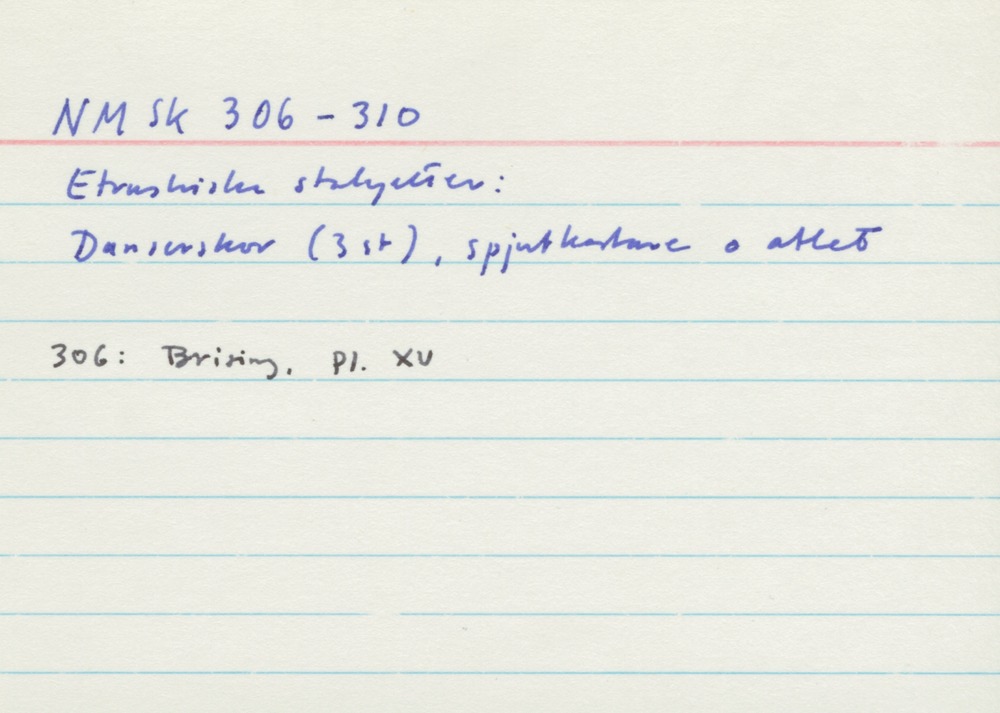 NM Sk 306 - 310
Etruskiska statyetter:
Danserskor (3 st), spjutkastare o atlet
306: Brising, Pl. XV